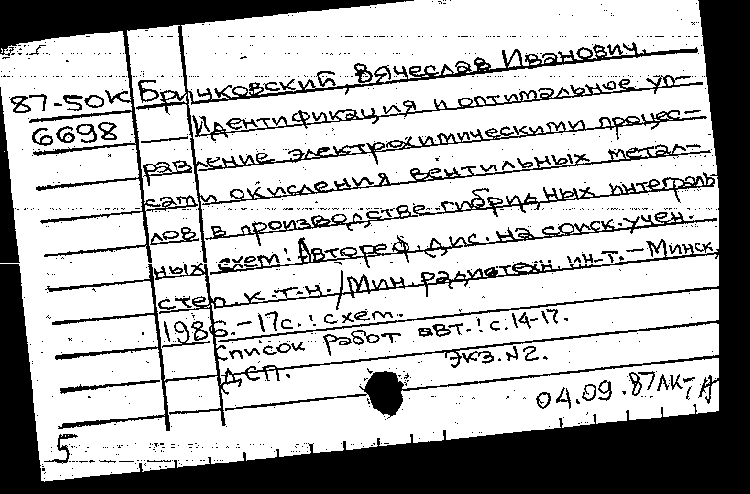 87-50К Бричковский, Вячеслав Иванович.
6698 Идентификация и оптимальное уп-
равление электрохимическими процес-
сами окисления вентильных метал-
лов в производстве гибридных интеграль
ных схем: Автореф. дис. на соиск. учен.
степ. к.т.н. / Мин. радиотехн. ин-т. - Минск,
1986. - 17с.: схем.
Список работ авт.: с. 14-17.
ДСП. Экз. N2.
04.09.87
5